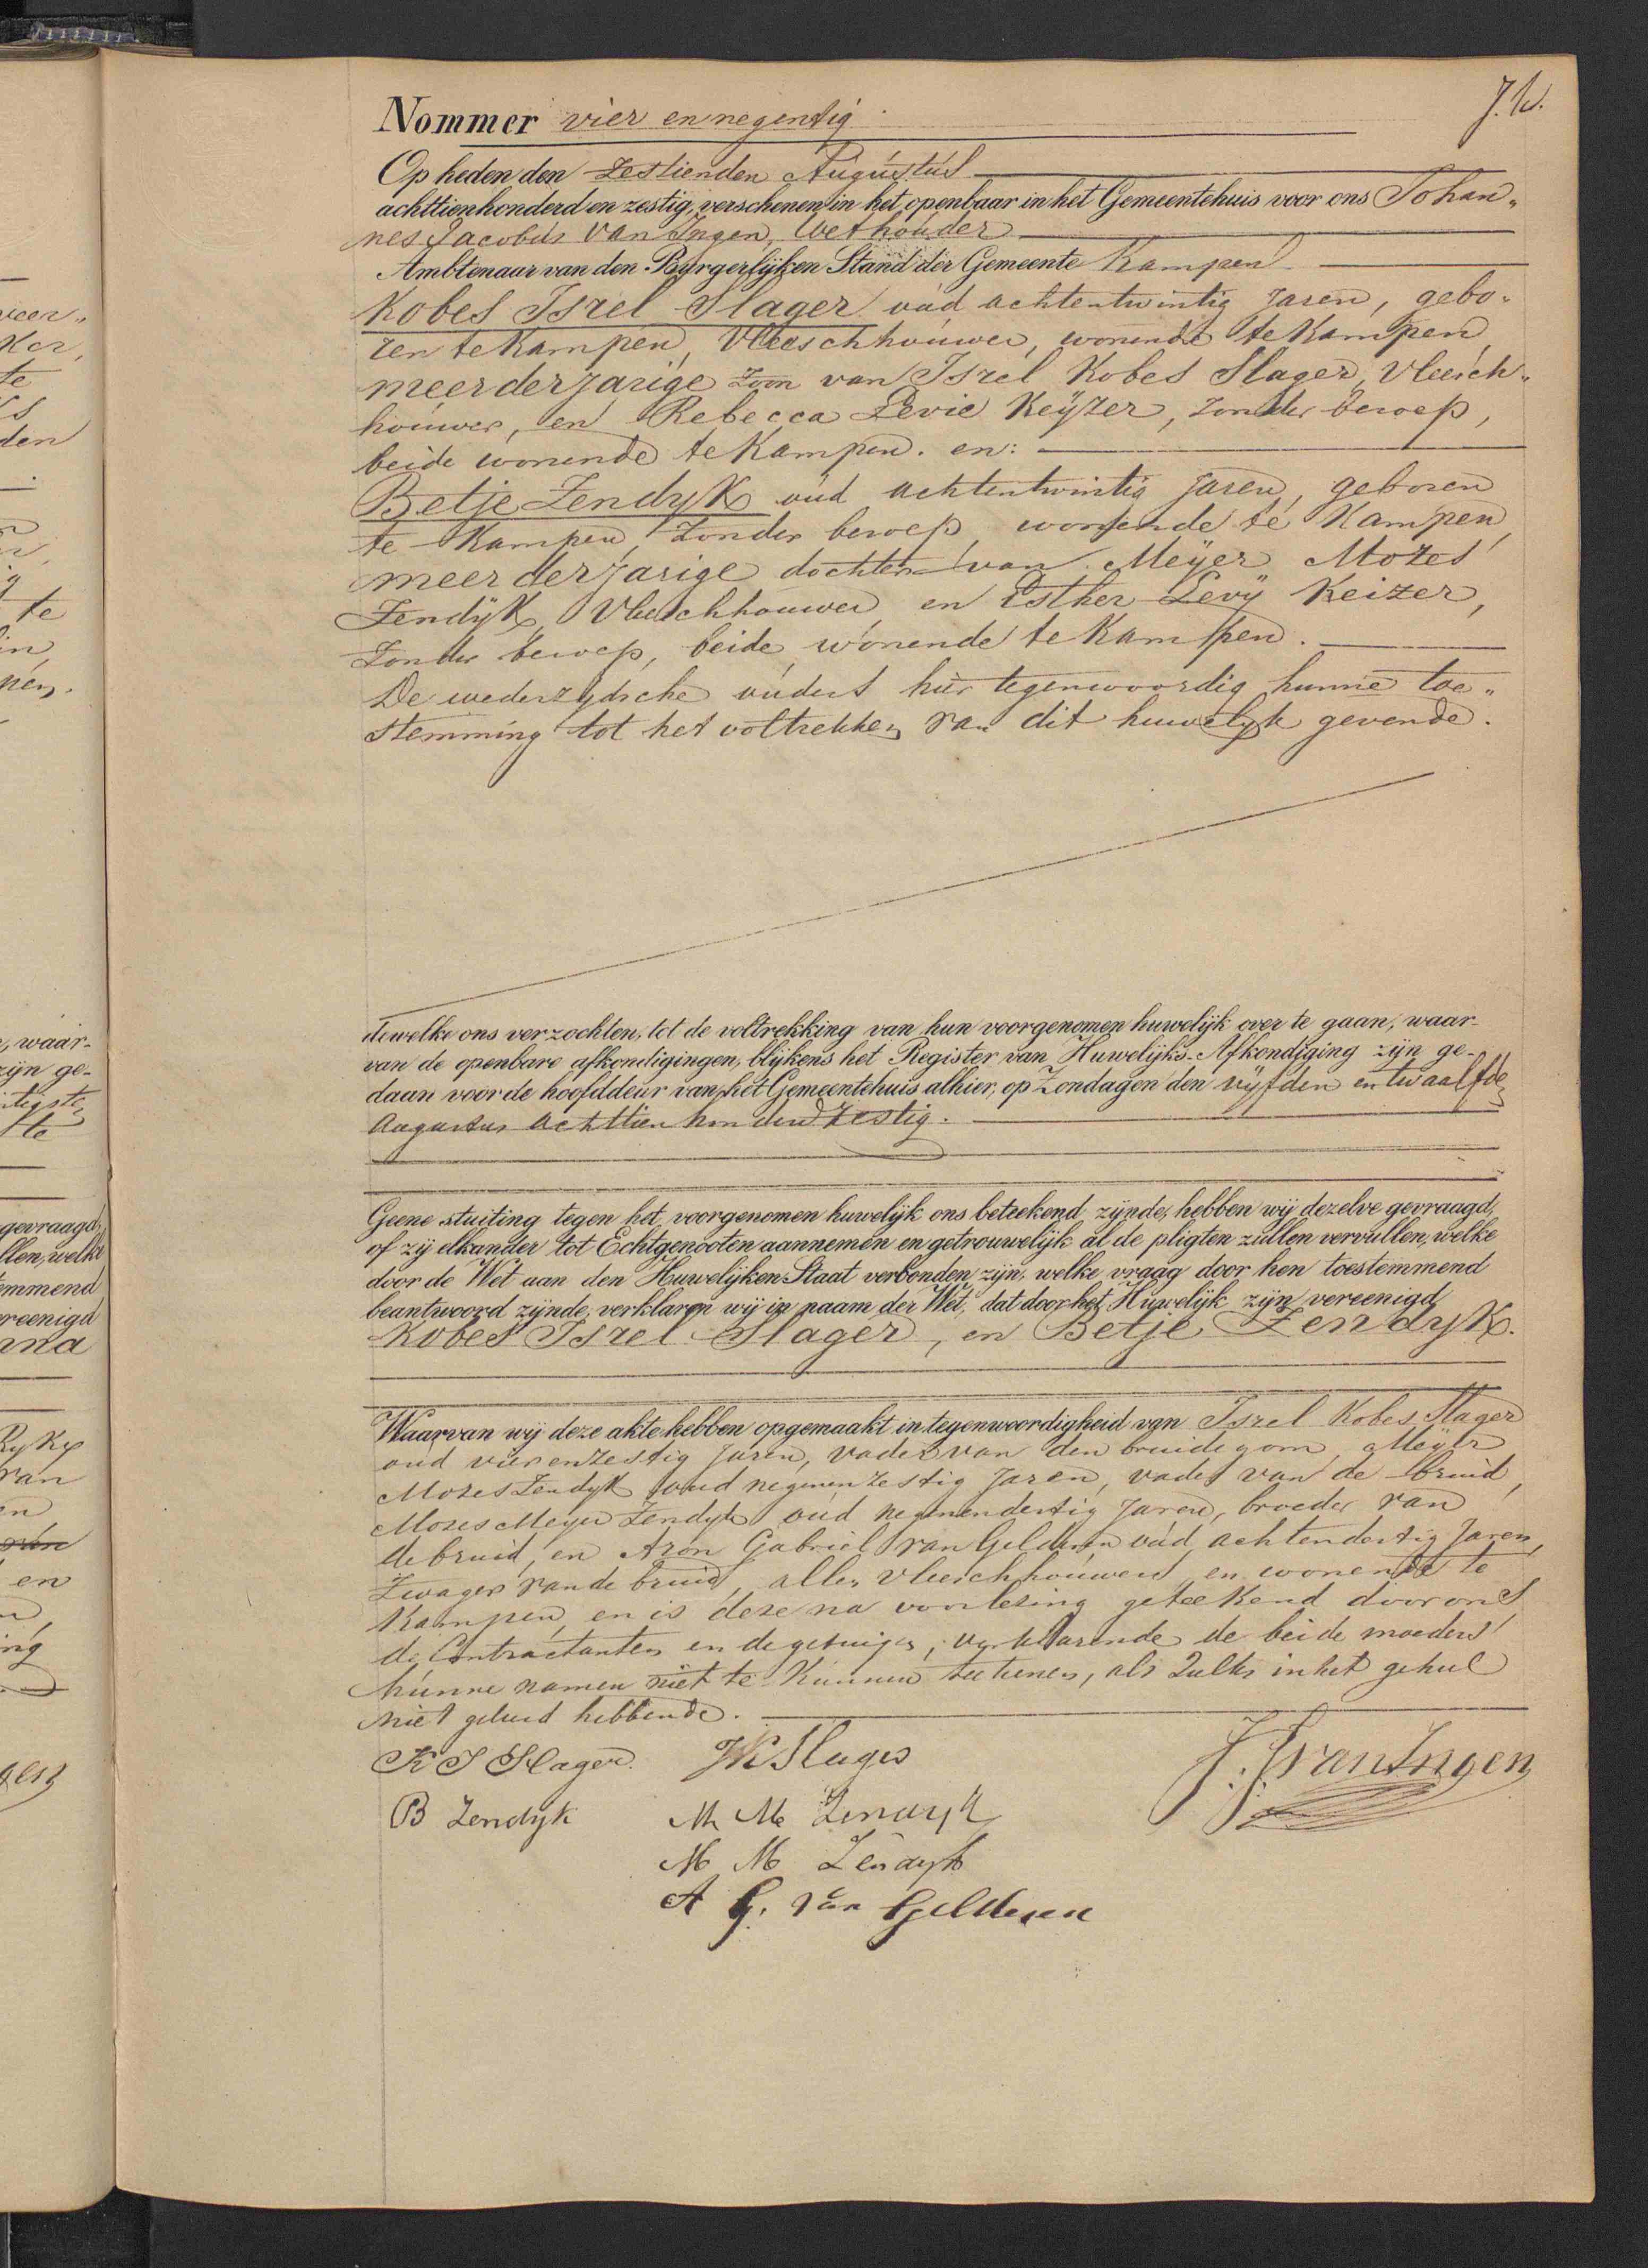 Nommer vier en negentig
J.W.
Op heden den zestienden Augustus
achttienhonderd en zestig, verschenen in het openbaar in het Gemeentehuis voor ons Johan„
nes Jacobus van Ingen, Wethouder
Ambtenaar van den Burgerlijken Stand der Gemeente Kampen
Kobes Isrel Slager oud achtentwintig jaren, gebo„
ren te Kampen, Vleeschhouwer, wonende te Kampen,
meerderjarige zoon van Isrel Kobes Slager, Vleesch„
houwer, en Rebecca Levie Keyzer, zonder beroep,
beide wonende te Kampen. en:
Betje Zendyk oud achtentwintig jaren, geboren
te Kampen, zonder beroep, wonende te Kampen,
meerderjarige dochter van Meyer Mozes
Zendÿk, Vleeschhouwer en Esther Levÿ Keizer,
zonder beroep, beide wonende te Kampen.
De wederzydsche ouders hier tegenwoordig hunne toe„
stemming tot het voltrekken van dit huwelyk gevende.
dewelke ons verzochten, tot de voltrekking van hun voorgenomen huwelijk over te gaan, waar-
van de openbare afkondigingen, blijkens het Register van Huwelijks-Afkondiging zijn ge-
daan voor de hoofddeur van het Gemeentehuis alhier, op Zondagen den vyfden en twaalfde
Augustus achttien honderd zestig.
Geene stuiting tegen het voorgenomen huwelijk ons beteekend zijnde, hebben wij dezelve gevraagd,
of zij elkander tot Echtgenooten aannemen en getrouwelijk al de pligten zullen vervullen, welke
door de Wet aan den Huwelijken Staat verbonden zijn, welke vraag door hen toestemmend
beantwoord zijnde, verklaren wij in naam der Wet, dat door het Huwelijk zijn vereenigd
Kobes Isrel Slager, en Betje Zendyk.
Waarvan wij deze akte hebben opgemaakt in tegenwoordigheid van Isrel Kobes Slager
oud vierenzestig jaren, vader van den bruidegom, Meÿer
Mozes Zendyk oud negenenzestig jaren, vader van de bruid,
Mozes Meyer Zendyk oud negenendertig jaren, broeder van
de bruid, en Aron Gabriel van Gelderen oud achtendertig jaren,
zwager van de bruid, allen vleeschhouwers en wonende te
Kampen, en is deze na voorlezing geteekend door ons,
de Contractanten en de getuigen, verklarende de beide moeders
hunne namen niet te kunnen teekenen, als zulks in het geheel
niet geleerd hebbende.
K I Slager. IK Slager J.J. van Ingen
B Zendijk M M Zendyk
M M Zendyk
A G. van Gelderen